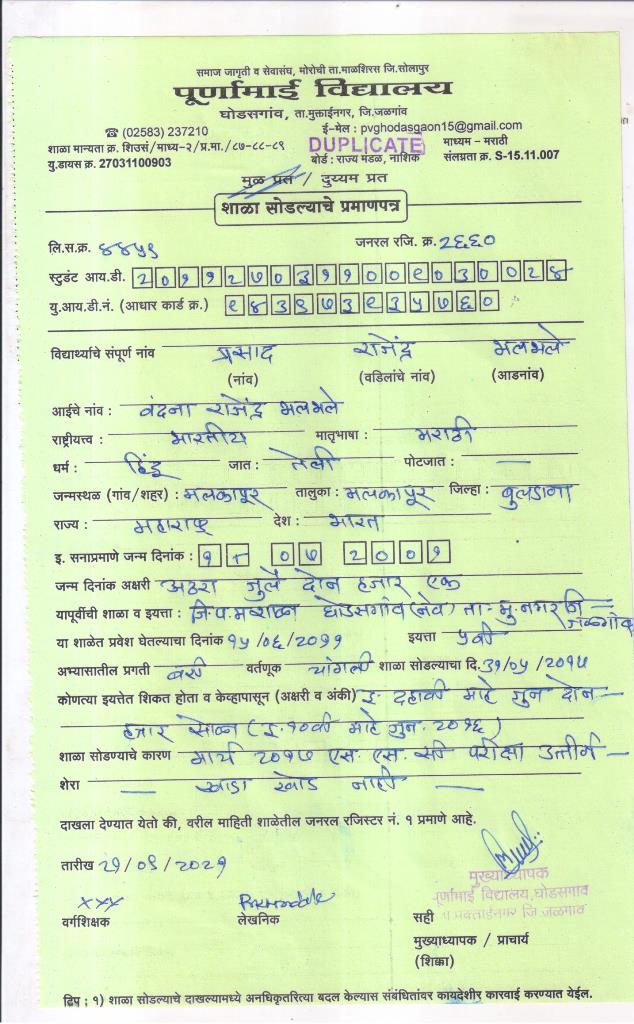 समाज जागृती व सेवासंघ, मोरोची ता.माळशिरस जि.सोलापुर
पूर्णामाई विद्यालय
घोडसगांव, ता.मुक्ताईनगर, जि.जळगांव
☎ (02583) 237210 ई-मेल : pvghodasgaon15@gmail.com
शाळा मान्यता क्र. शिउसं/माध्य-२/प्र.मा./८७-८८-८९ DUPLICATE माध्यम - मराठी
यु.डायस क्र. 27031100903 बोर्ड : राज्य मडळ, नाशिक संलग्नता क्र. S-15.11.007
मुळ प्रत / दुय्यम प्रत
शाळा सोडल्याचे प्रमाणपत्र
लि.स.क्र. ४४५९ जनरल रजि. क्र. २६६०
स्टुडंट आय.डी. २०११२७०३११००९०३००२४
यु.आय.डी.नं. (आधार कार्ड क्र.) ९४३९७३९३५७६०
विद्यार्थ्याचे संपूर्ण नांव प्रसाद राजेंद्र भलभले
(नांव) (वडिलांचे नांव) (आडनांव)
आईचे नांव : वंदना राजेंद्र भलभले
राष्ट्रीयत्त्व : भारतीय मातृभाषा : मराठी
धर्म : हिंदू जात : तेली पोटजात : —
जन्मस्थळ (गांव/शहर) : मलकापूर तालुका : मलकापूर जिल्हा : बुलडाना
राज्य : महाराष्ट्र देश : भारत
इ. सनाप्रमाणे जन्म दिनांक : १८ ०७ २००१
जन्म दिनांक अक्षरी अठरा जुलै दोन हजार एक
यापूर्वीची शाळा व इयत्ता : जि.प.मराठी घोडसगांव (नवे) ता. मु.नगर जि — जळगांव
या शाळेत प्रवेश घेतल्याचा दिनांक १५/०६/२०११ इयत्ता ५वी
अभ्यासातील प्रगती बरी वर्तणूक चांगली शाळा सोडल्याचा दि. ३१/०५/२०१७
कोणत्या इयत्तेत शिकत होता व केव्हापासून (अक्षरी व अंकी) इ. दहावी माहे जुन दोन —
हजार सोळा (इ. १०वी माहे जुन. २०१६)
शाळा सोडण्याचे कारण मार्च २०१७ एस. एस. सी परीक्षा उत्तीर्ण —
शेरा — खाडा खोड नाही —
दाखला देण्यात येतो की, वरील माहिती शाळेतील जनरल रजिस्टर नं. १ प्रमाणे आहे.
तारीख २१/०९/२०२१
मुख्याध्यापक
पूर्णामाई विद्यालय,घोडसगाव
xxx
वर्गशिक्षक लेखनिक सही
मुख्याध्यापक / प्राचार्य
(शिक्का)
टिप : १) शाळा सोडल्याचे दाखल्यामध्ये अनधिकृतरित्या बदल केल्यास संबंधितांवर कायदेशीर कारवाई करण्यात येईल.